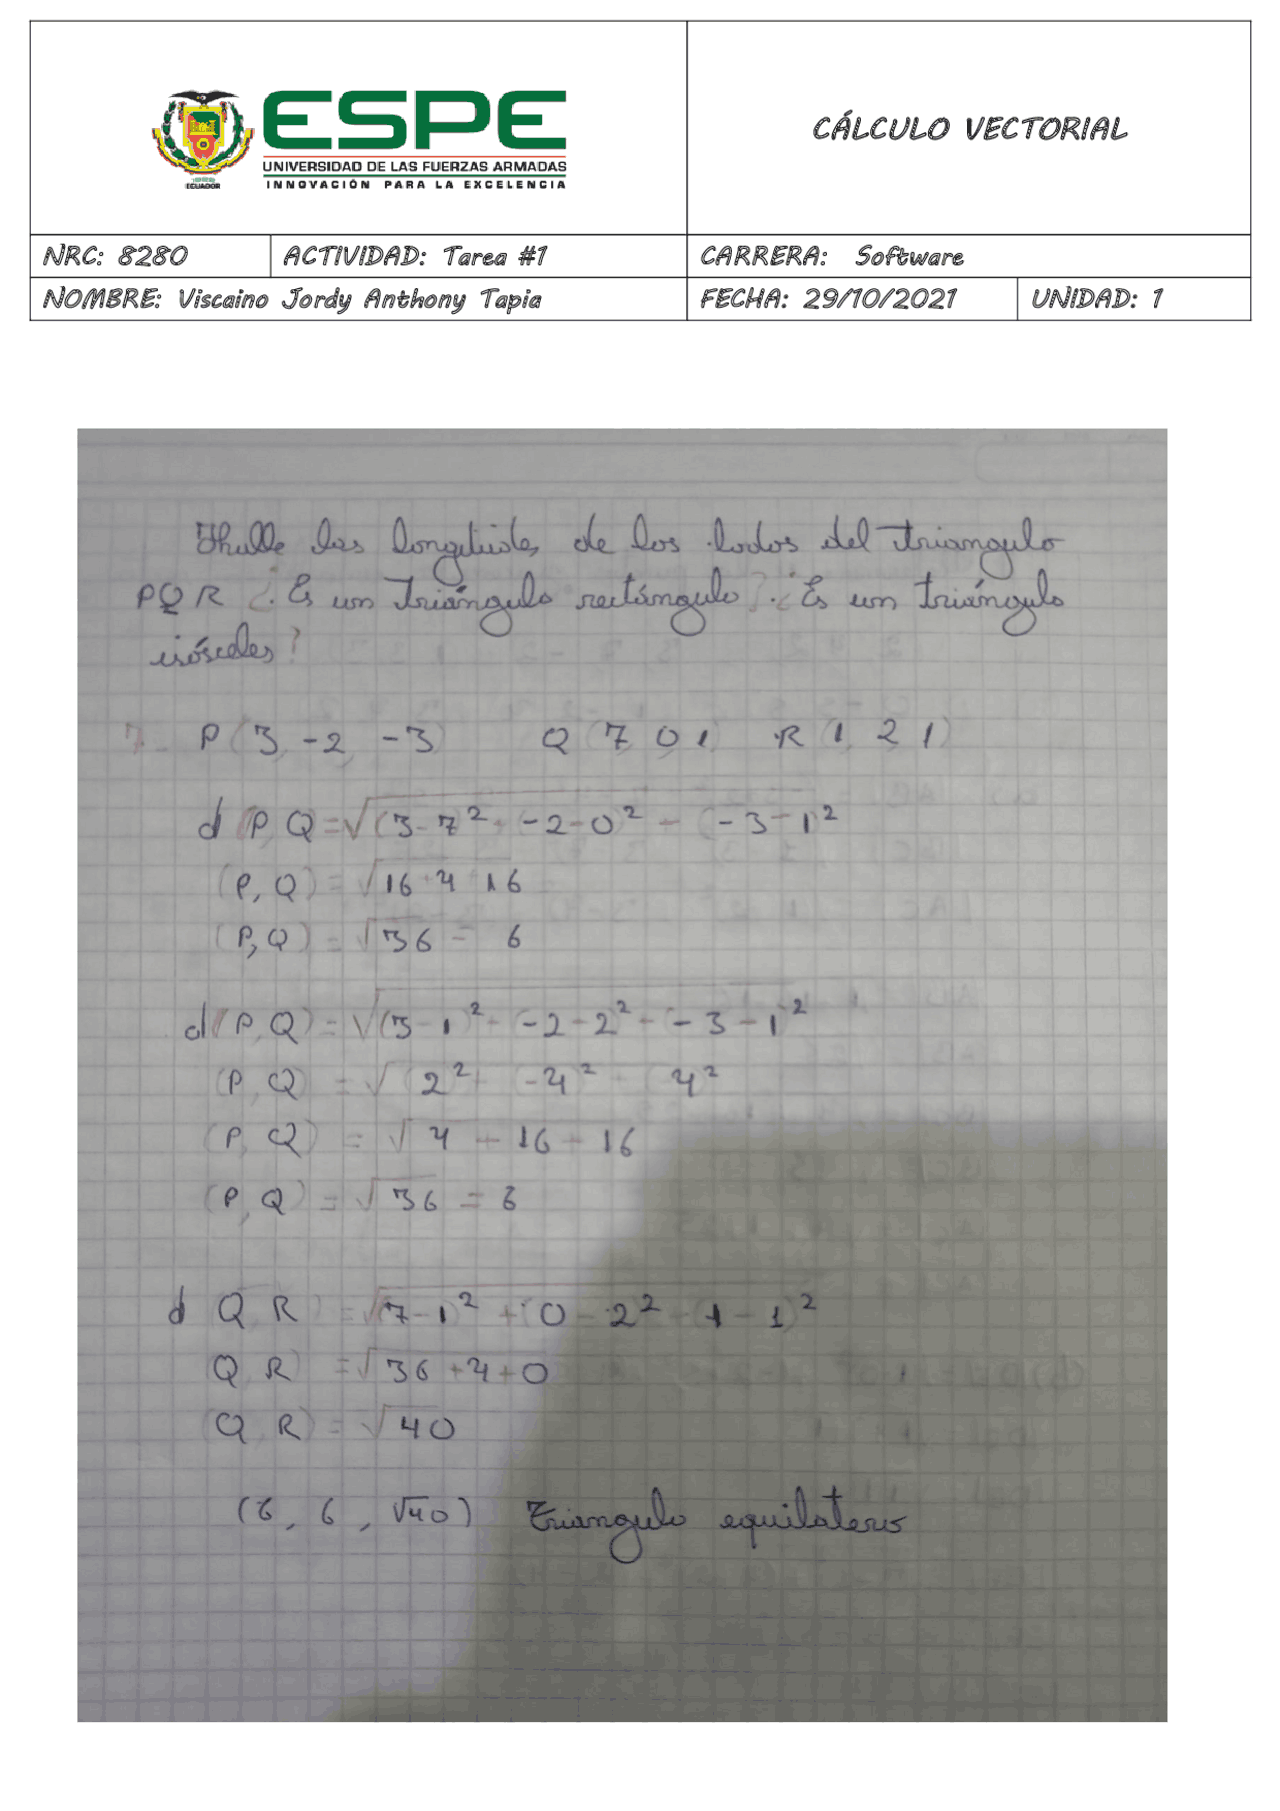 ESPE
UNIVERSIDAD DE LAS FUERZAS ARMADAS
INNOVACIÓN PARA LA EXCELENCIA
ECUADOR
CÁLCULO VECTORIAL
NRC: 8280 ACTIVIDAD: Tarea #1 CARRERA: Software
NOMBRE: Viscaino Jordy Anthony Tapia FECHA: 29/10/2021 UNIDAD: 1
las longitudes de los lados del triangulo
PQR ¿.Es un Triángulo rectángulo? ¿Es un triángulo
isósceles?
7- P(3, -2, -3) Q(7, 0, 1) R(1, 2, 1)
d(P, Q) = √(3-7)² + (-2-0)² - (-3-1)²
(P, Q) = √16+4+16
(P, Q) = √36 = 6
d(P, Q) = √(3-1)² + (-2-2)² + (-3-1)²
(P, Q) = √(2)² + (-4)² + (4)²
(P, Q) = √4+16+16
(P, Q) = √36 = 6
d(Q, R) = √(7-1)² + (0-2)² + (1-1)²
(Q, R) = √36+4+0
(Q, R) = √40
(6, 6, √40) Triangulo equilatero